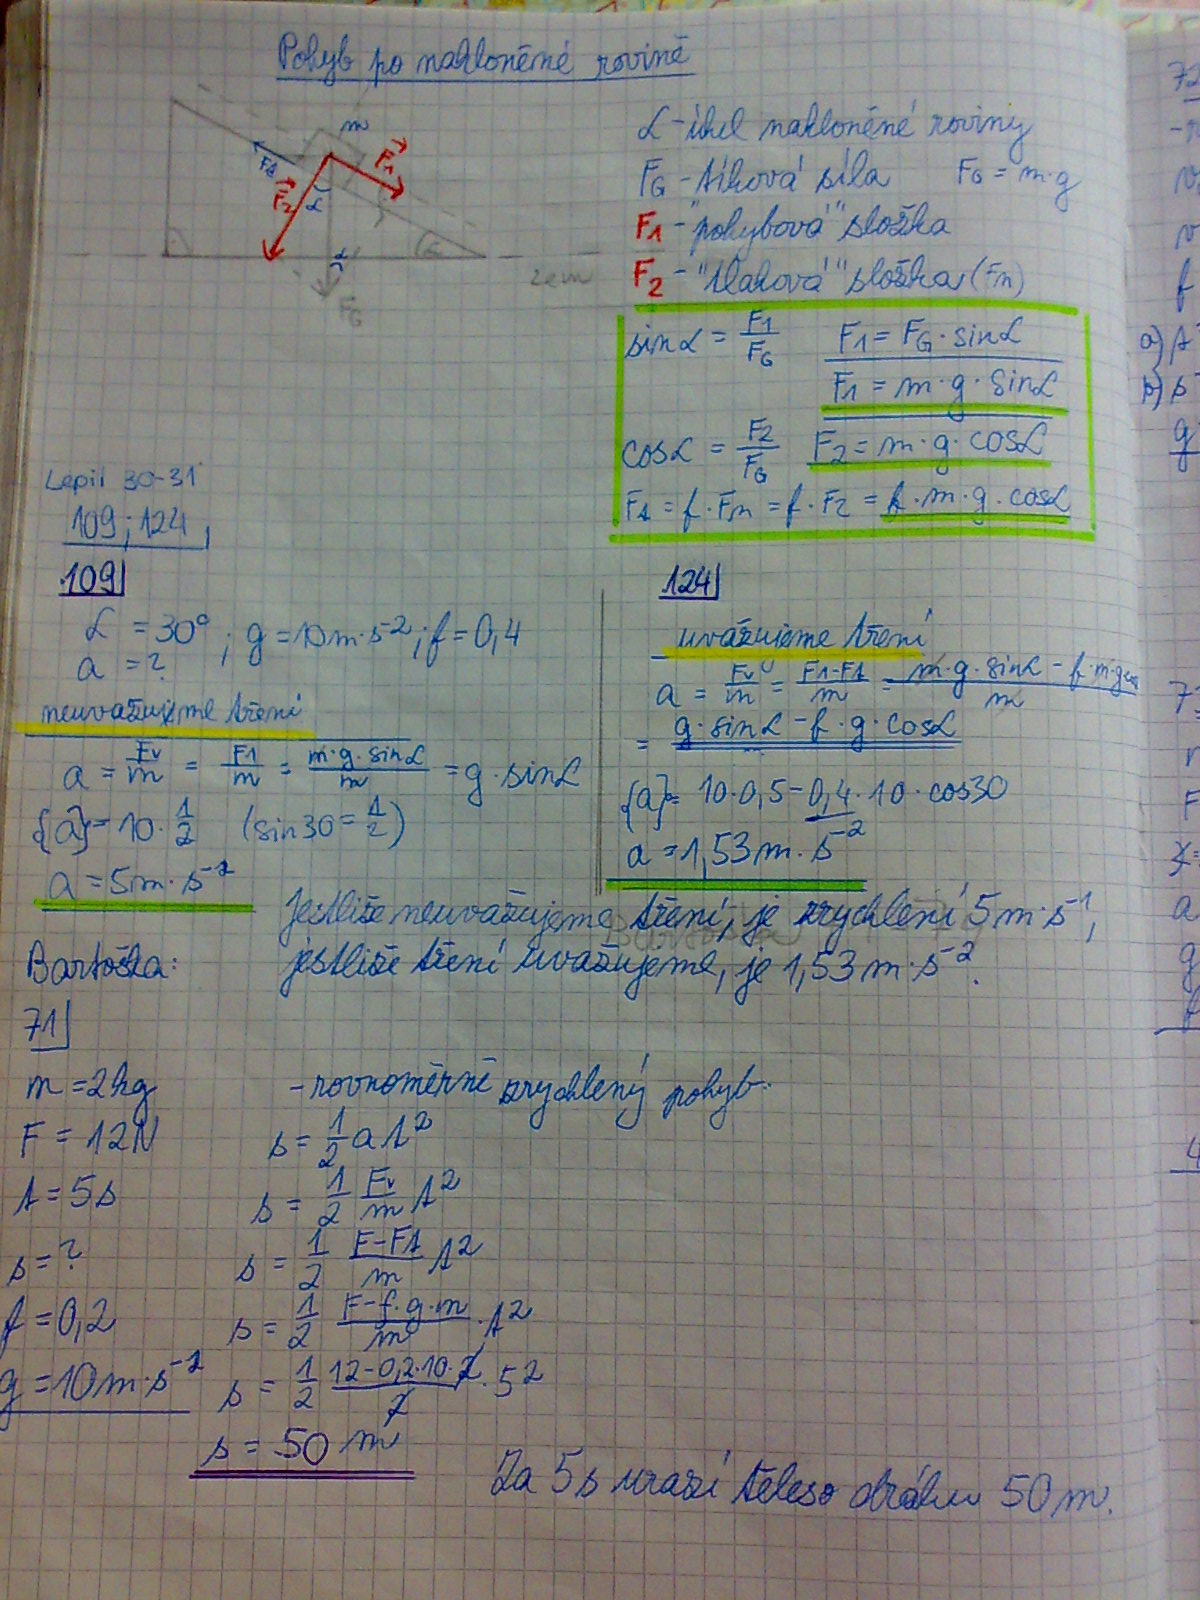 Pohyb po nakloněné rovině
m
F₁
Ft
F₂
α
α
α
zem
FG
α - úhel nakloněné roviny
FG - tíhová síla FG = m·g
F₁ - "pohybová" složka
F₂ - "tlaková" složka (Fn)
sin α = F₁/FG F₁ = FG · sin α
F₁ = m · g · sin α
cos α = F₂/FG F₂ = m · g · cos α
Ft = f · Fn = f · F₂ = f · m · g · cos α
Lepil 30-31
109; 124,
109
α = 30°; g = 10 m·s⁻²; f = 0,4
a = ?
neuvažujeme tření
a = Fv/m = F₁/m = m·g·sin α/m = g · sin α
{a} = 10 · 1/2 (sin 30 = 1/2)
a = 5 m·s⁻²
124
uvažujeme tření
a = Fv/m = F₁-Ft/m = m·g·sin α - f·m·g cos/m
= g·sin α - f·g·cos α
{a} = 10·0,5-0,4·10·cos30
a = 1,53 m·s⁻²
Jestliže neuvažujeme tření, je zrychlení 5 m·s⁻¹,
jestliže tření uvažujeme, je 1,53 m·s⁻².
Bartoška:
71
m = 2 kg
F = 12 N
t = 5 s
s = ?
f = 0,2
g = 10 m·s⁻²
- rovnoměrně zrychlený pohyb
s = 1/2 at²
s = 1/2 Fv/m t²
s = 1/2 F-Ft/m t²
s = 1/2 F-f·g·m/m · t²
s = 1/2 12-0,2·10·2/2 · 5²
s = 50 m
Za 5 s urazí těleso dráhu 50 m.
72
a)
b)
g